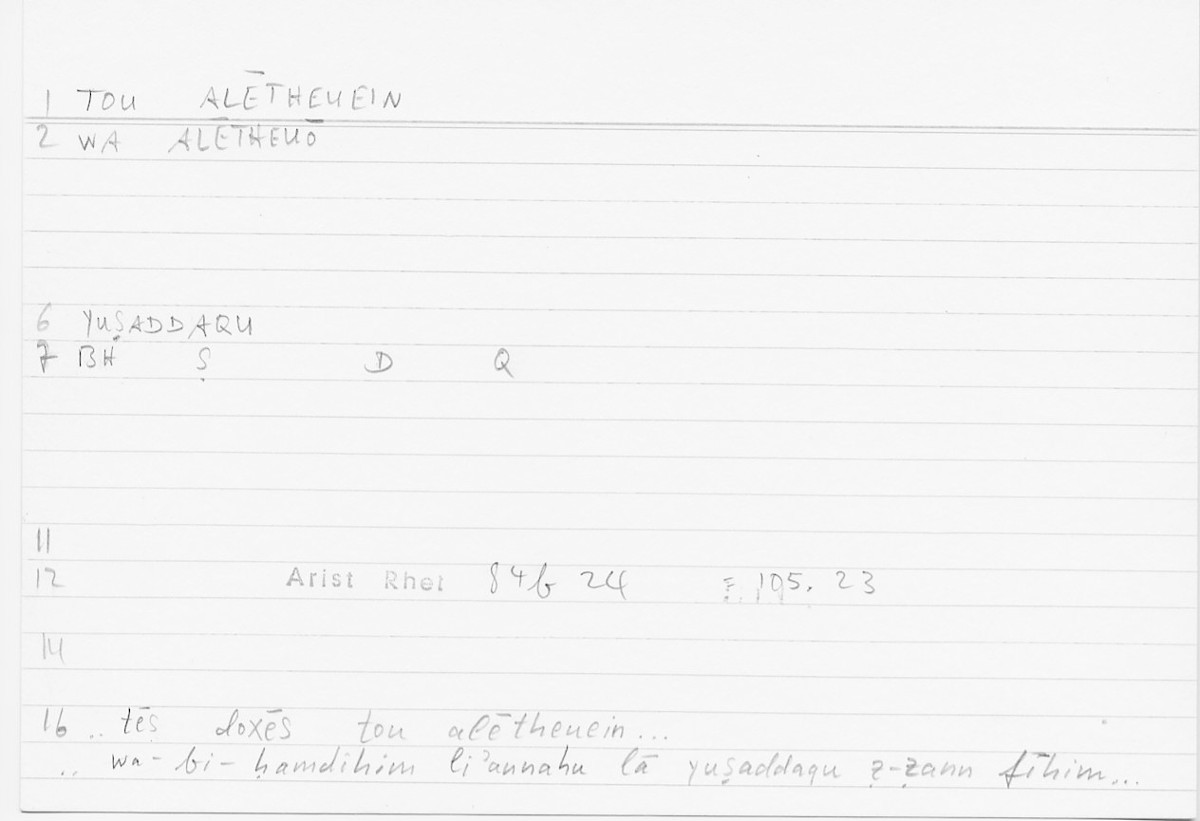 1 TOU ALĒTHEUEIN
2 WA ALĒTHEUŌ
6 YUṢADDAQU
7 BH Ṣ D Q
11
12 Arist Rhet 84b 24 105. 23
14
16 .. tēs doxēs tou alētheuein...
.. wa-bi-ḥamdihim li'annahu lā yuṣaddaqu ẓ-ẓann fīhim...